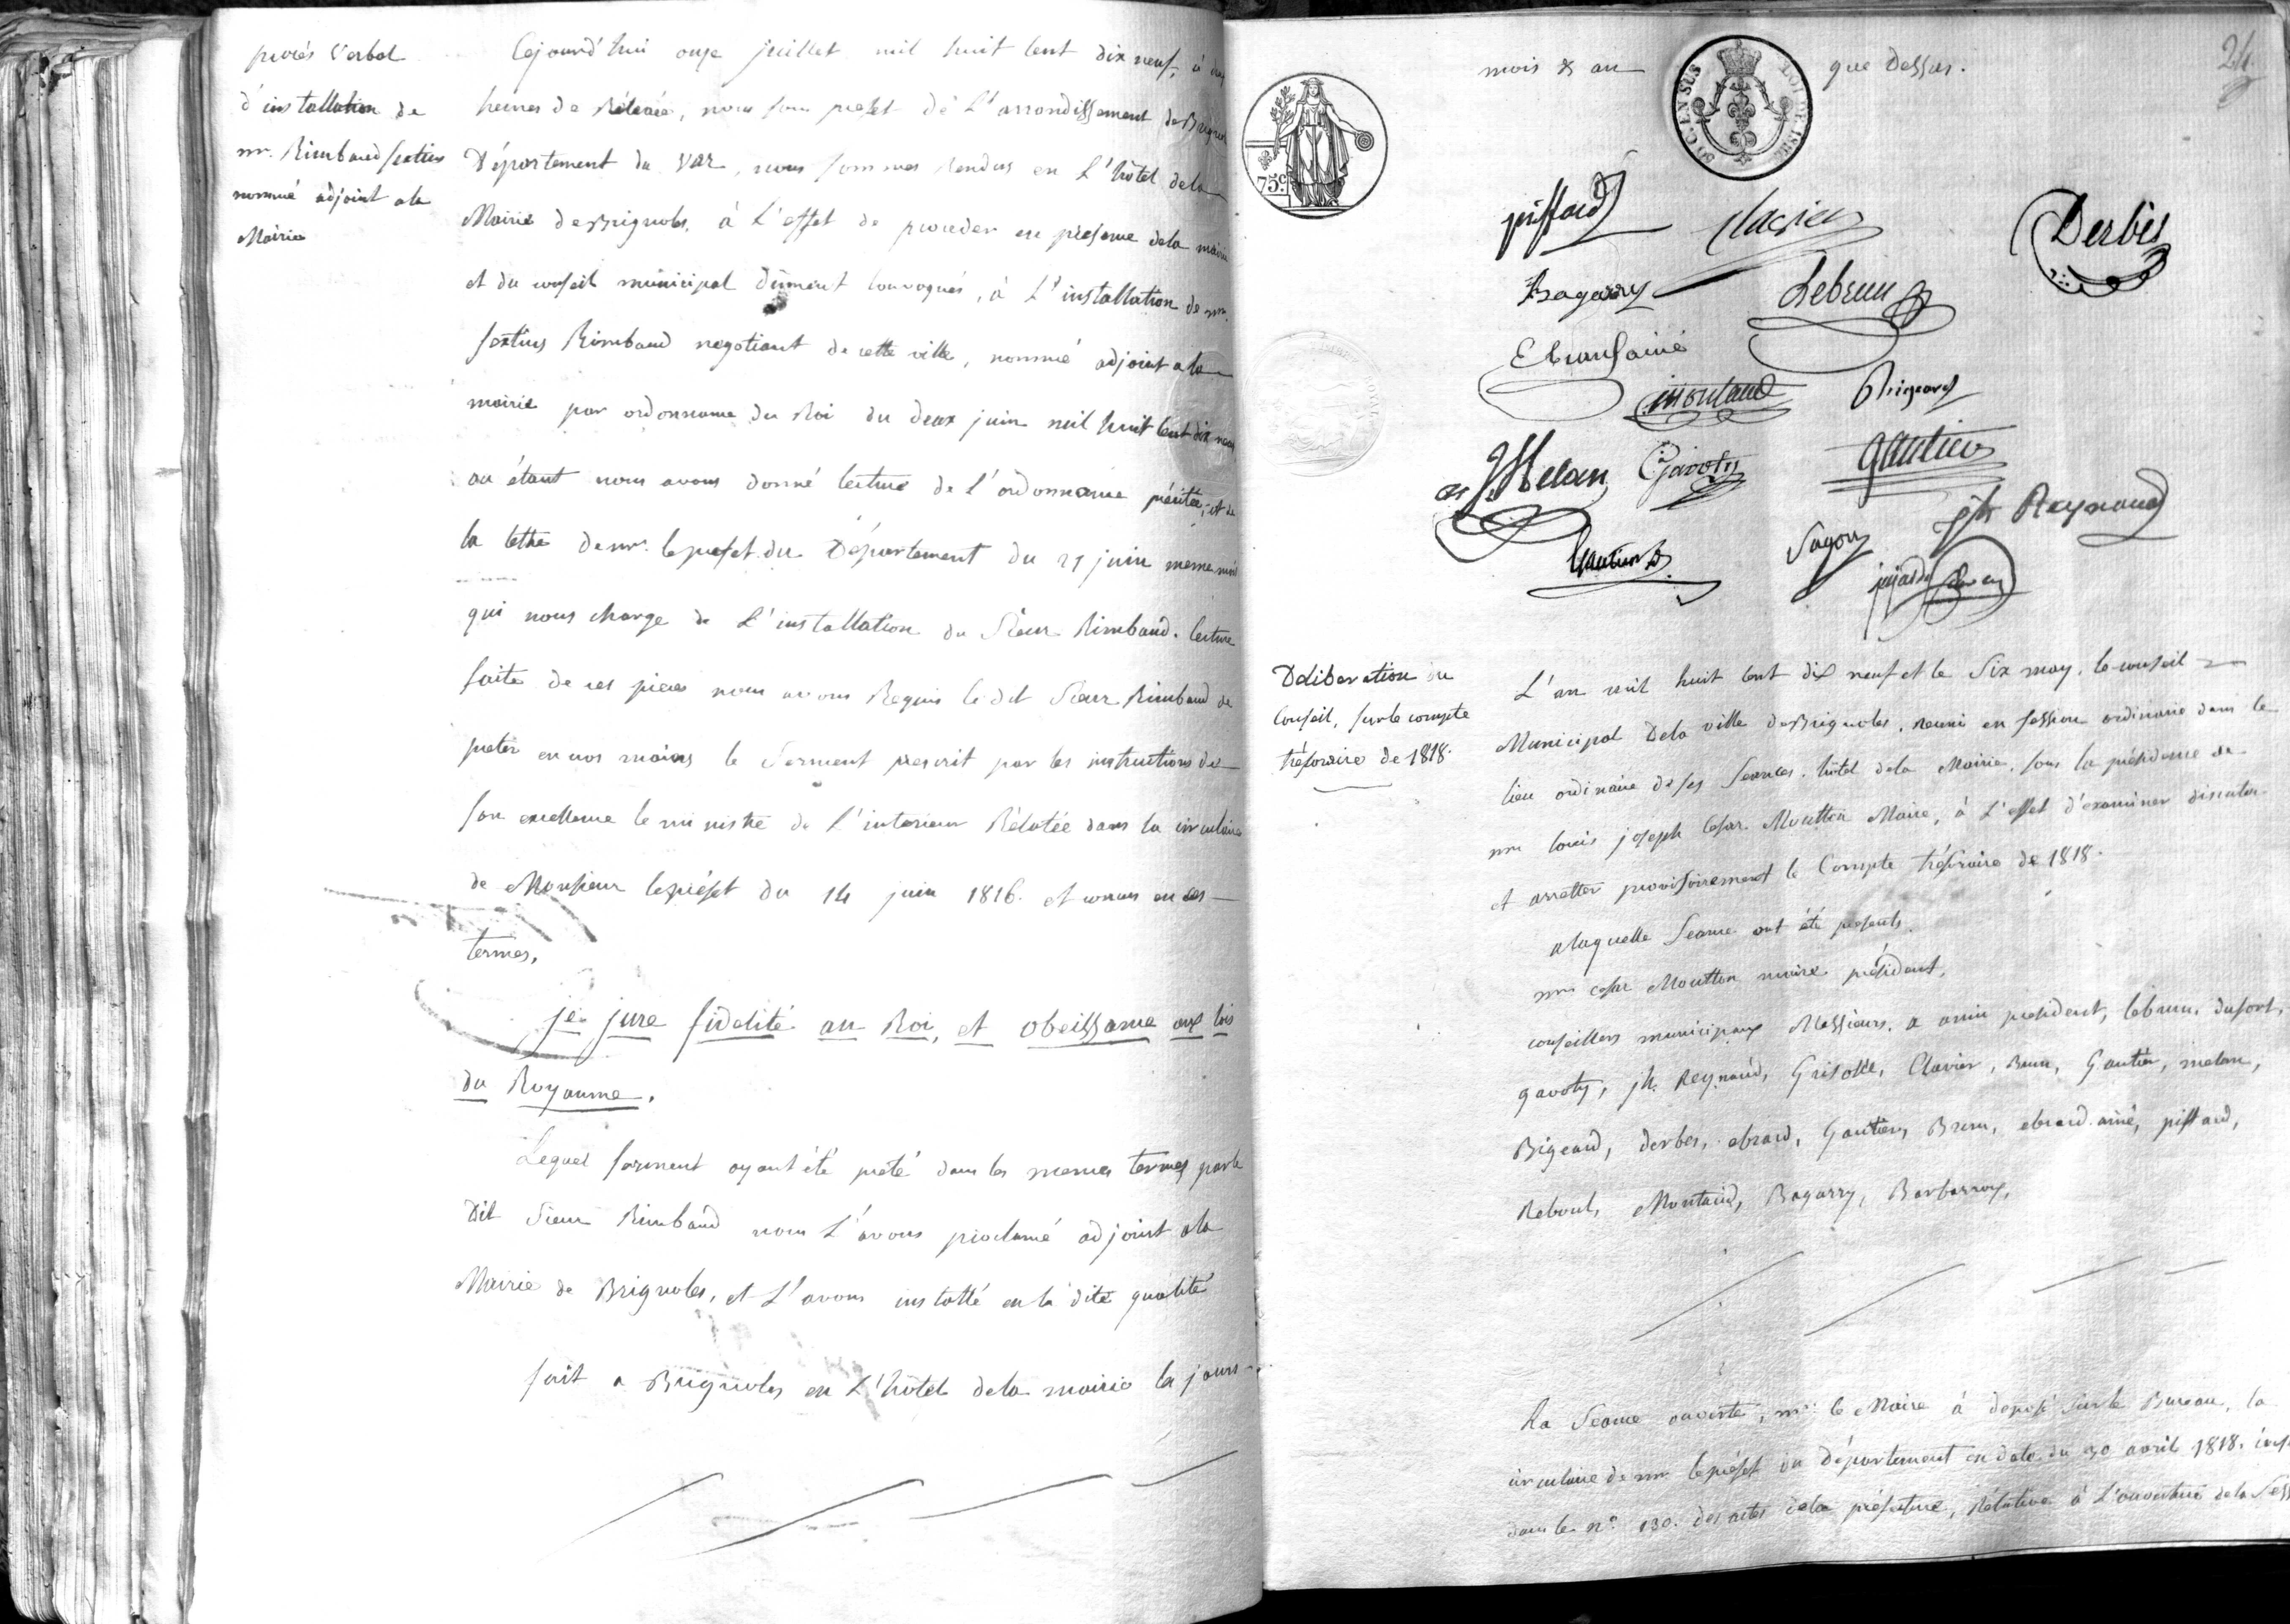 procés Verbal
d'installation de
mr. Rimbaud sextius
nommé adjoint a la
Mairie
Cejourd'hui onze juillet mil huit cent dix neuf, à
heures de Rélevée, nous sous prefet de L'arrondissement de Brignoles
Département du Var, nous sommes Rendus en L'hôtel dela
Mairie de Brignoles, à L'effet de proceder en presence dela mairie
et du conseil municipal dûment convoqués, à L'installation de mr.
sextius Rimbaud negotiant de cette ville, nommé adjoint a la
mairie par ordonnance du Roi du deux juin mil huit cent dix neuf
ou étant nous avons donné lecture de L'ordonnance précitée, et de
la lettre de mr. le prefet du Département du 21 juin meme mois
qui nous charge de L'installation du Sieur Rimbaud. lecture
faite de ces pieces nous avons Requis le dit Sieur Rimbaud de
preter en nos mains le Serment prescrit par les instructions de
son excellence le ministre de L'interieur Rélatée dans la circulaire
de Monsieur le préfet du 14 juin 1816. et conçus en ces
termes,
je jure fidelité au Roi, et obeissance aux lois
du Royaume.
Lequel serment ayant été preté dans les memes termes par le
Dit Sieur Rimbaud nous L'avons proclamé adjoint a la
Mairie de Brignoles, et L'avons installé en la dite qualité
fait a Brignoles en L'hôtel dela mairie les jours
24
mois & an que Dessus.
75c.
50 C. EN SUS
LOI DE 1816
piffard
Clavier
Derbès
Bagarry
Lebrun
Ebrard ainé
Montaud
Bigeard
J. Melan
Gavoty
Gautier
Jph Reynaud
Gautier
Deliberation du
Conseil, sur le compte
trésoraire de 1818.
L'an mil huit cent dix neuf et le Six may, le conseil
Municipal Dela ville de Brignoles, reuni en session ordinaire dans le
lieu ordinaire de ses Seances, hôtel dela Mairie, sous la présidence de
mr louis joseph Cesar Moutton Maire, à L'effet d'examiner discuter
et arretter provisoirement le Compte trésoraire de 1818.
a laquelle Seance ont été presents.
mr cesar Moutton maire président,
conseillers municipaux Messieurs, president, lebrun, dufort,
gavoty, jh. Reynaud, Grisolle, Clavier, Brun, Gautier, melan,
Bigeard, derbes, ebrard, Gautier, Brun, ebrard ainé, piffard,
Reboul, Montaud, Bagarry, Barbarroux,
La Seance ouverte, mr. le Maire à deposé sur le Bureau, la
circulaire de mr. le préfet du Département en date du 30 avril 1818.
dans le no. 130. des actes dela préfecture, Rélative à L'ouverture dela